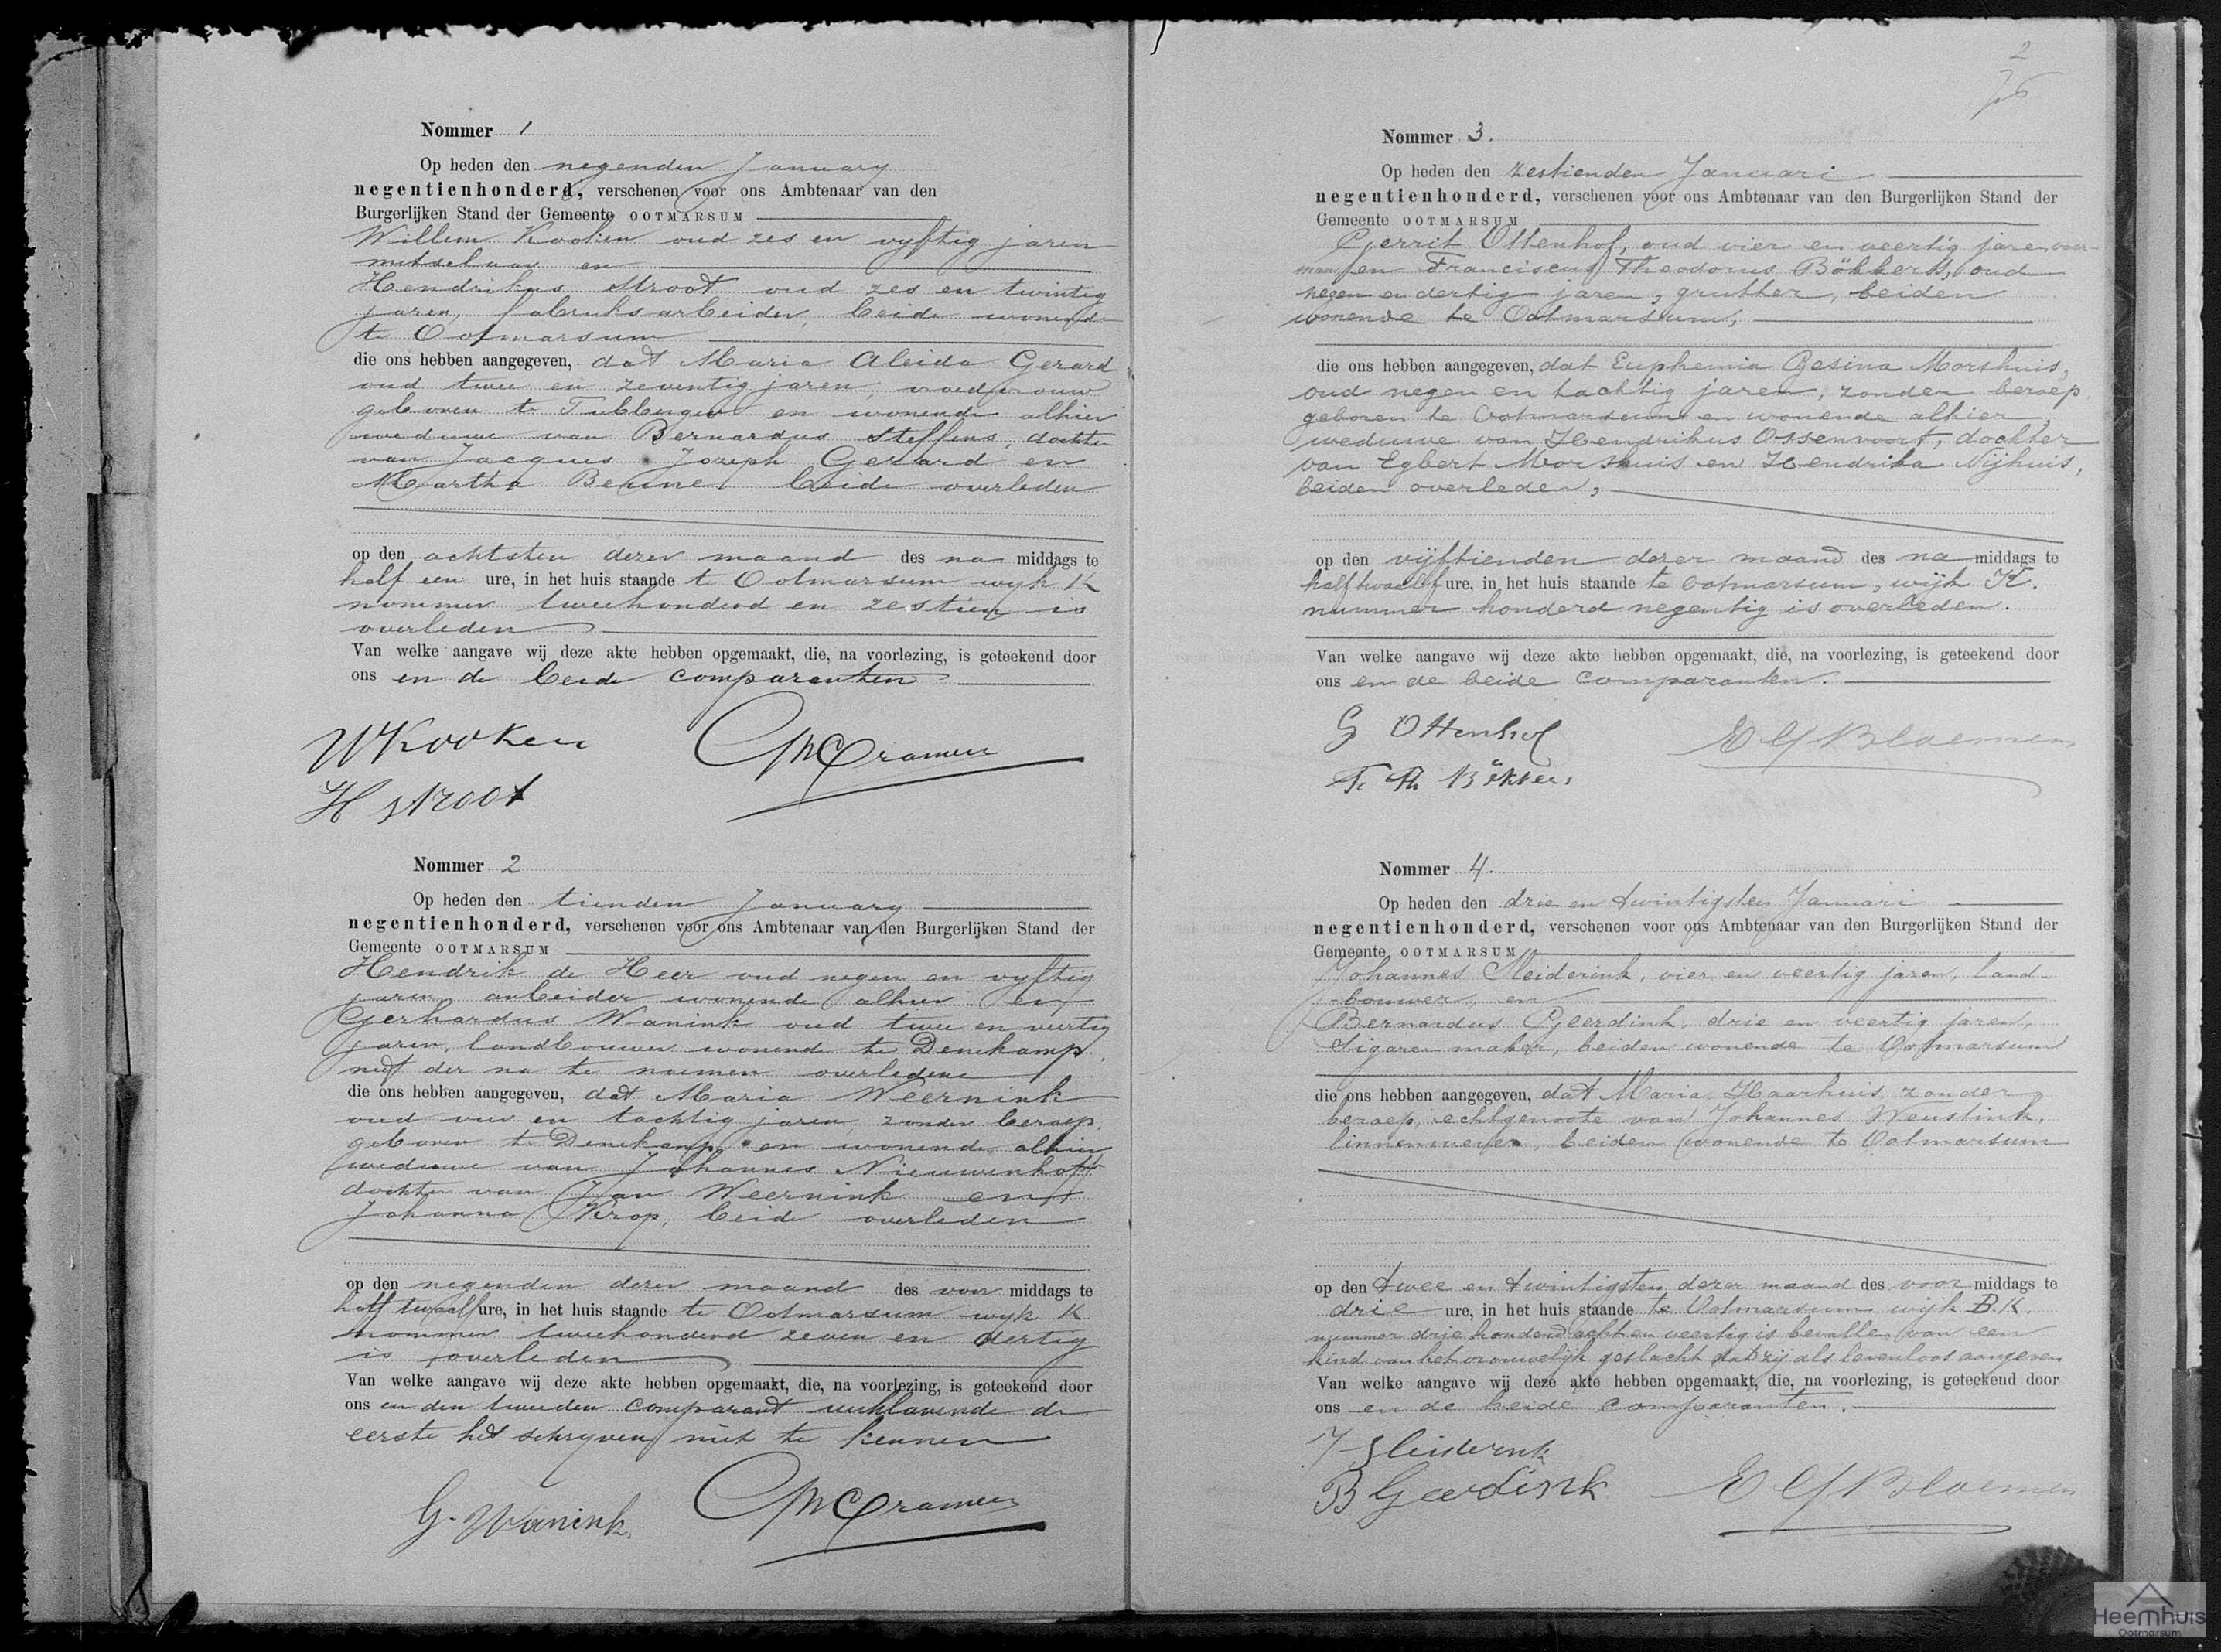 Nommer 1
Op heden den negenden January
negentienhonderd, verschenen voor ons Ambtenaar van den
Burgerlijken Stand der Gemeente OOTMARSUM
Willem Kooken oud zes en vyftig jaren
metselaar en
Hendrikus Stroot oud zes en twintig
jaren, fabrieksarbeider, beide wonend
te Ootmarsum
die ons hebben aangegeven, dat Maria Aleida Gerard
oud twee en zeventig jaren, vroedvrouw
geboren te Tubbergen en wonende alhier
weduwe van Bernardus Steffens, dochter
van Jacques Jozeph Gerard en
Martha beide overleden
op den achtsten dezer maand des na middags te
half een ure, in het huis staande te Ootmarsum wyk K
nommer tweehonderd en zestien is
overleden
Van welke aangave wij deze akte hebben opgemaakt, die, na voorlezing, is geteekend door
ons en de beide comparanten
W Kooken
H Stroot
Nommer 2
Op heden den tienden January
negentienhonderd, verschenen voor ons Ambtenaar van den Burgerlijken Stand der
Gemeente OOTMARSUM
Hendrik de Heer oud negen en vyftig
jaren arbeider wonende alhier en
Gerhardus Wanink oud twee en veertig
jaren, landbouwer wonende te Denekamp
neef der na te noemen overledene
die ons hebben aangegeven, dat Maria Weernink
oud vier en tachtig jaren, zonder beroep,
geboren te Denekamp en wonende alhier
weduwe van Johannes Nieuwenhoff
dochter van Jan Weernink en
Johanna Krop, beide overleden
op den negenden dezer maand des voor middags te
half twaalf ure, in het huis staande te Ootmarsum wyk K
nommer tweehonderd zeven en dertig
is overleden
Van welke aangave wij deze akte hebben opgemaakt, die, na voorlezing, is geteekend door
ons en den tweeden comparant verklarende de
eerste het schryven niet te kennen
G. Wanink
2
Nommer 3.
Op heden den zestienden Januari
negentienhonderd, verschenen voor ons Ambtenaar van den Burgerlijken Stand der
Gemeente OOTMARSUM
Gerrit Ottenhof, oud vier en veertig jaren, voer-
man, en Franciscus Theodorus Bökkers, oud
negen en dertig jaren, grutter, beiden
wonende te Ootmarsum,
die ons hebben aangegeven, dat Euphemia Gesina Morshuis,
oud negen en tachtig jaren, zonder beroep,
geboren te Ootmarsum en wonende alhier,
weduwe van Hendrikus Ossenvoort, dochter
van Egbert Morshuis en Hendrika Nijhuis,
beiden overleden,
op den vijftienden dezer maand des na middags te
half twaalf ure, in het huis staande te Ootmarsum, wijk K.
nummer honderd negentig is overleden.
Van welke aangave wij deze akte hebben opgemaakt, die, na voorlezing, is geteekend door
ons en de beide comparanten.
G Ottenhof
F. Th Bökkers
Bloemen
Nommer 4.
Op heden den drie en twintigsten Januari
negentienhonderd, verschenen voor ons Ambtenaar van den Burgerlijken Stand der
Gemeente OOTMARSUM
Johannes Sleiderink, vier en veertig jaren, land-
-bouwer, en
Bernardus Geerdink, drie en veertig jaren,
Sigarenmaker, beiden wonende te Ootmarsum
die ons hebben aangegeven, dat Maria Haarhuis zonder
beroep, echtgenoote van Johannes Weustink,
linnenwever, beiden wonende te Ootmarsum
op den twee en twintigsten dezer maand des voor middags te
drie ure, in het huis staande te Ootmarsum wijk B. K.
nummer drie honderd acht en veertig is bevallen van een
kind van het vrouwelijk geslacht dat zij als levenloos aangeven
Van welke aangave wij deze akte hebben opgemaakt, die, na voorlezing, is geteekend door
ons en de beide comparanten.
J Sleiderink
B Geerdink
Bloemen
Heemhuis
Ootmarsum